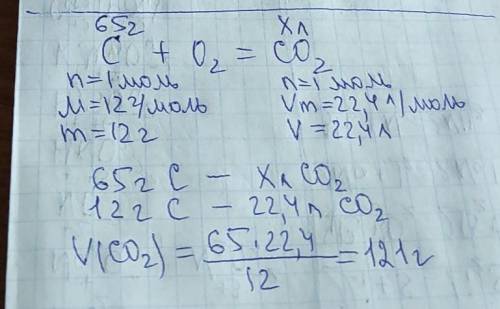 65г Xл
C + O₂ = CO₂
n=1 моль n=1 моль
M=12г/моль Vm=22,4 л/моль
m=12г V=22,4 л
65г C – Xл CO₂
12г C – 22,4 л CO₂
V(CO₂) = 65·22,4 / 12 = 121г